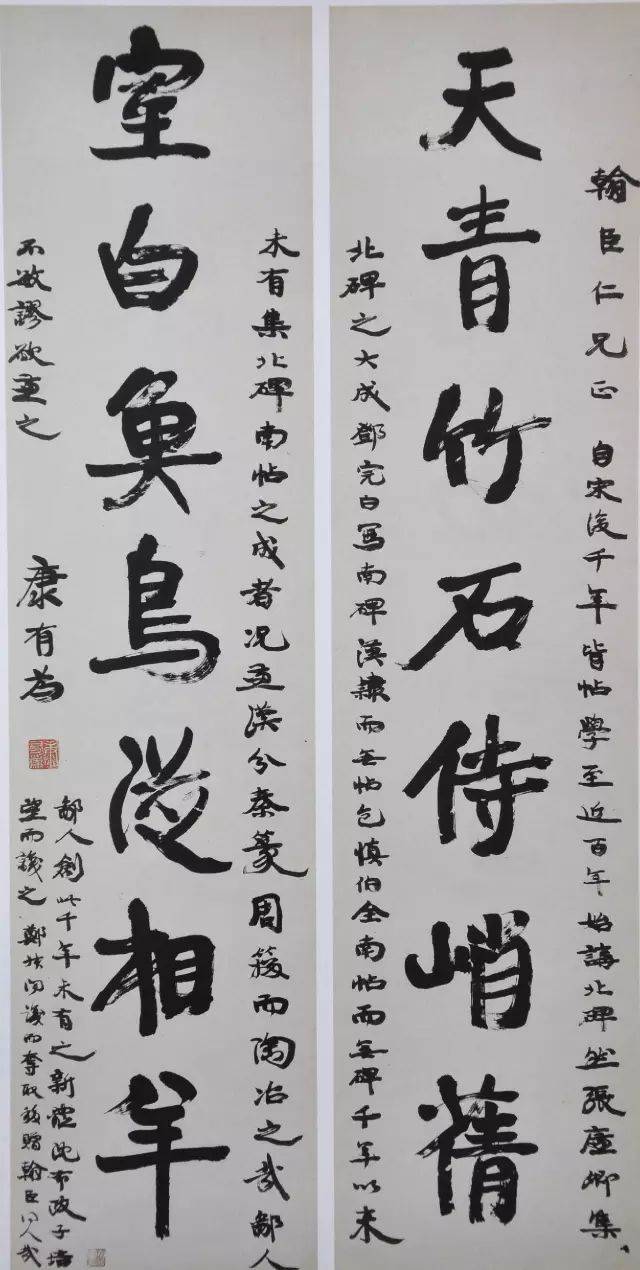 翰臣仁兄正 自宋後千年皆帖學至近百年始講北碑然張廉卿集
天青竹石侍峭蒨
北碑之大成鄧完白寫南碑漢隸而無帖包慎伯全南帖而無碑千年以來
未有集北碑南帖之成者况兼漢分秦篆周籀而陶冶之哉鄙人
室白魚鳥從相羊
不敏謬欲兼之
康有為
鄙人創此千年未有之新體沈布政子培
望而識之 鄭叔問識而奪取移贈翰臣